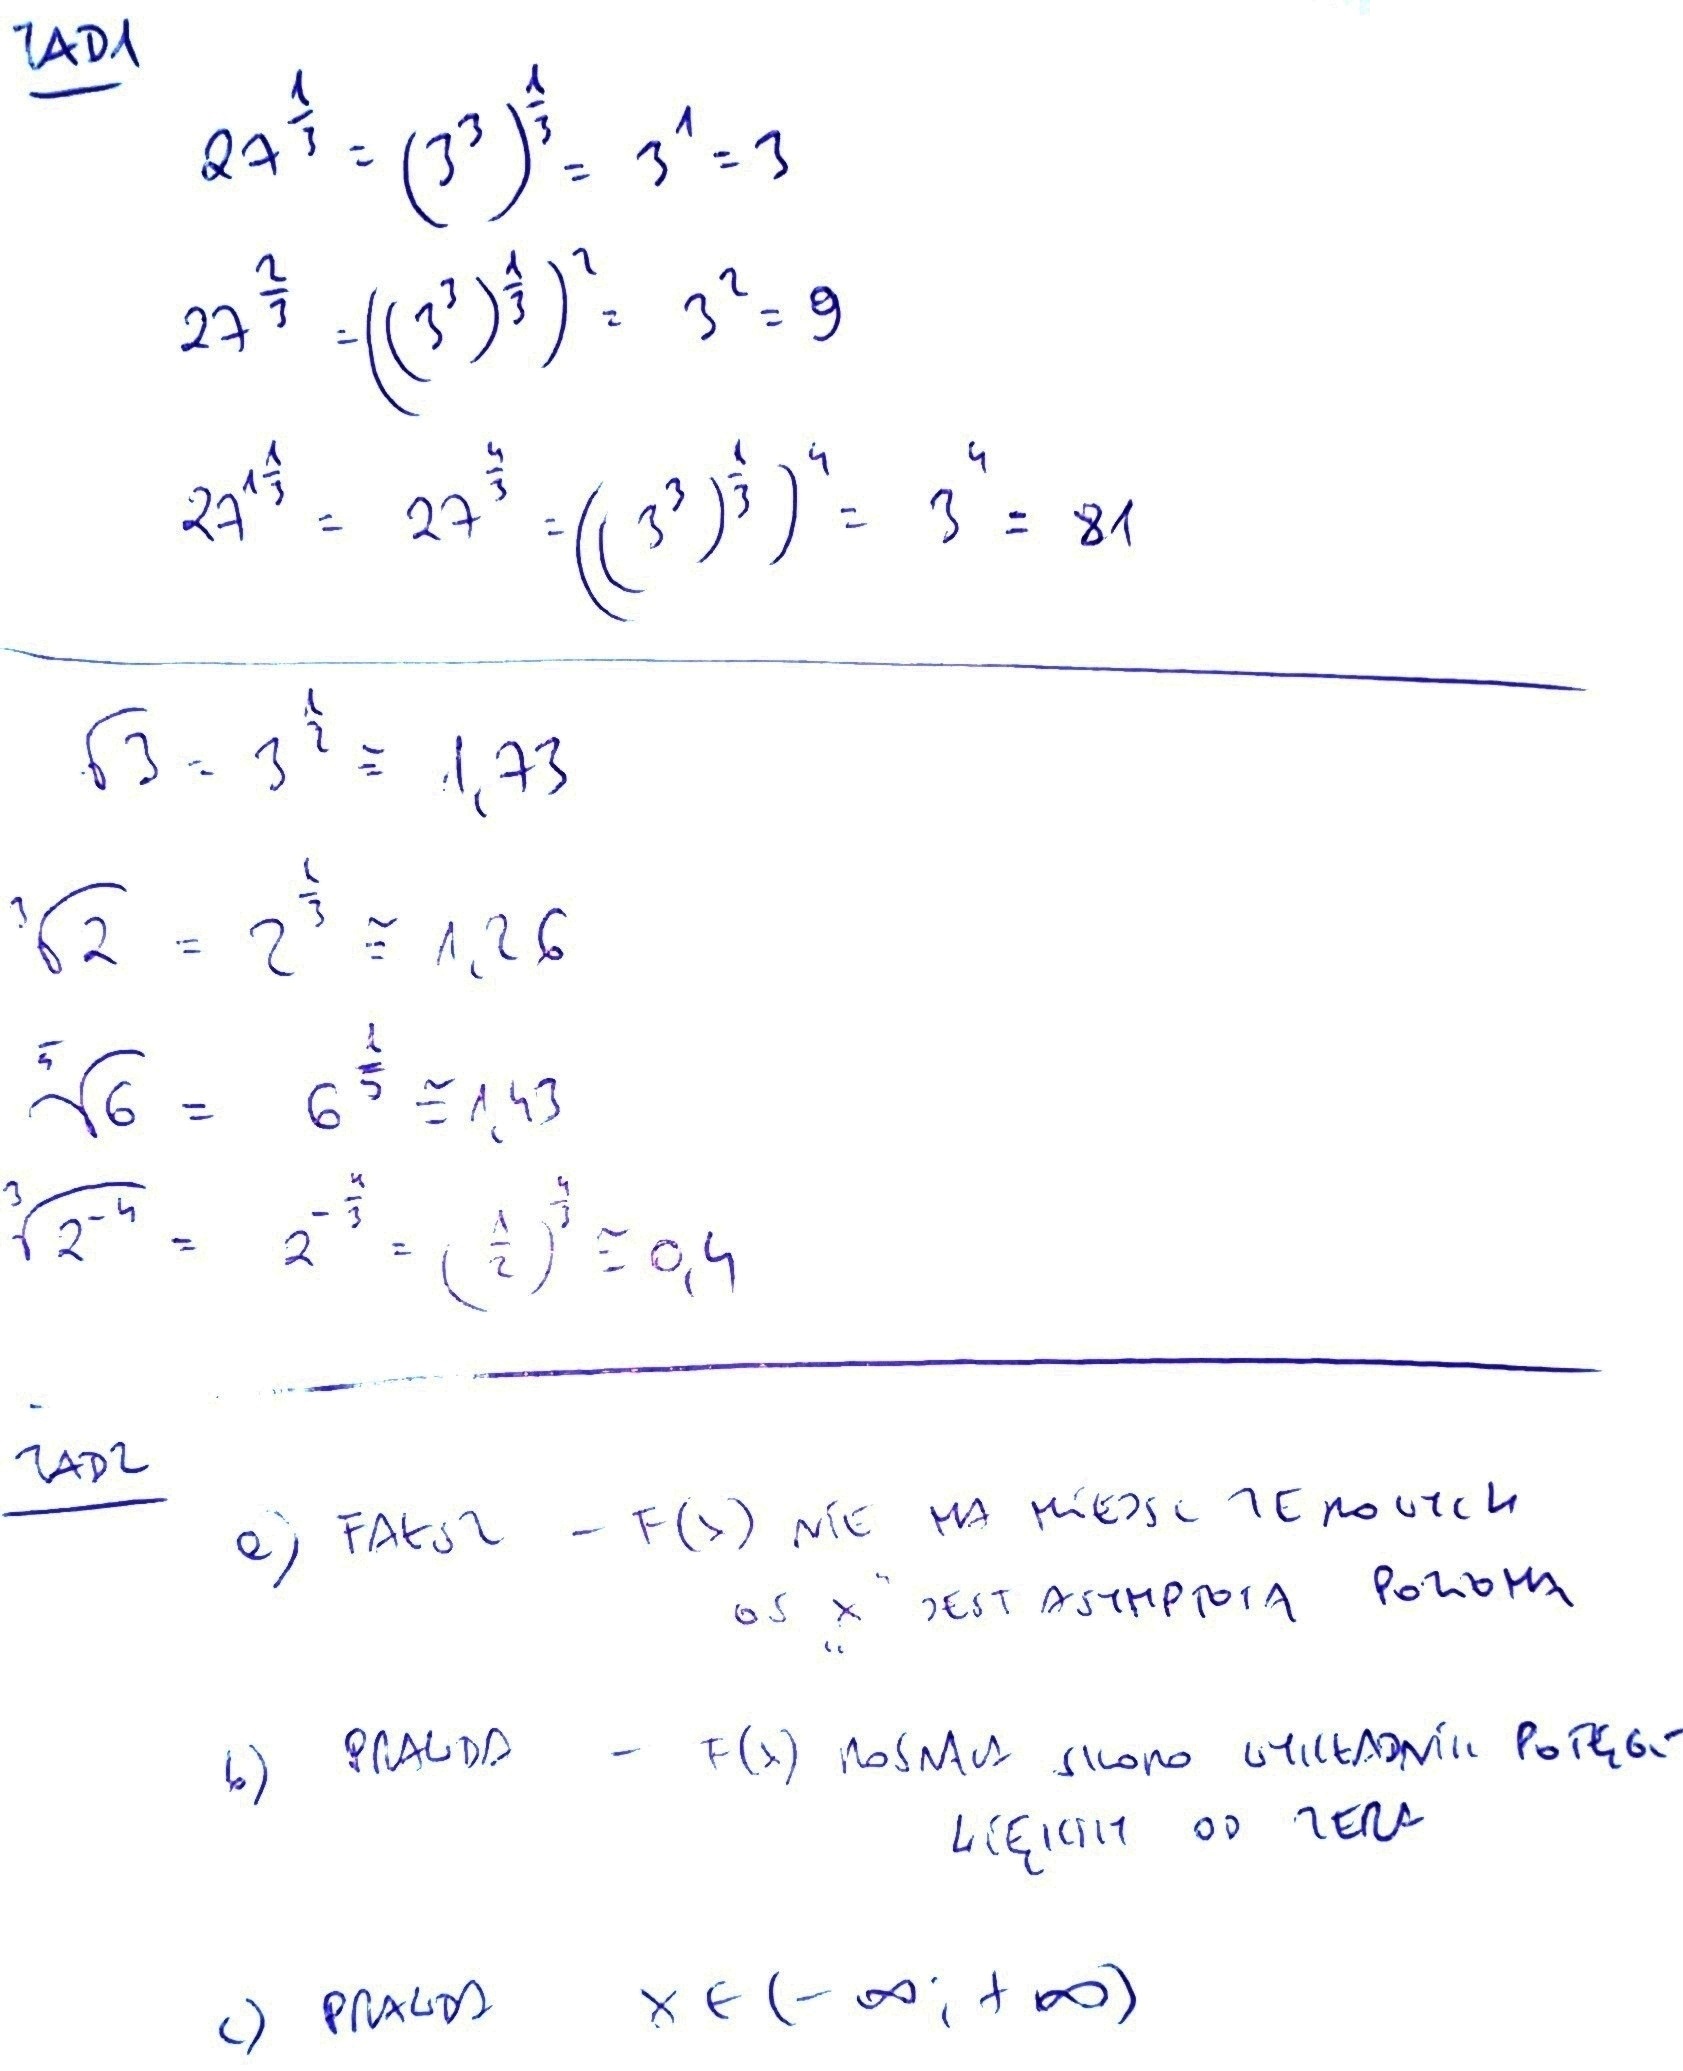 ZAD1
27^(1/3) = (3^3)^(1/3) = 3^1 = 3
27^(2/3) = ((3^3)^(1/3))^2 = 3^2 = 9
27^(1 1/3) = 27^(4/3) = ((3^3)^(1/3))^4 = 3^4 = 81
√3 = 3^(1/2) ≅ 1,73
³√2 = 2^(1/3) ≅ 1,26
⁵√6 = 6^(1/5) ≅ 1,43
³√(2^-4) = 2^(-4/3) = (1/2)^(4/3) ≅ 0,4
ZAD2
a) FAŁSZ - F(x) NIE MA MIEJSC ZEROWYCH
OŚ „x" JEST ASYMPTOTĄ POZIOMĄ
b) PRAWDA - F(x) ROSNĄCA SKORO WYKŁADNIK POTĘGI
WIĘKSZY OD ZERA
c) PRAWDA x ∈ (-∞; +∞)